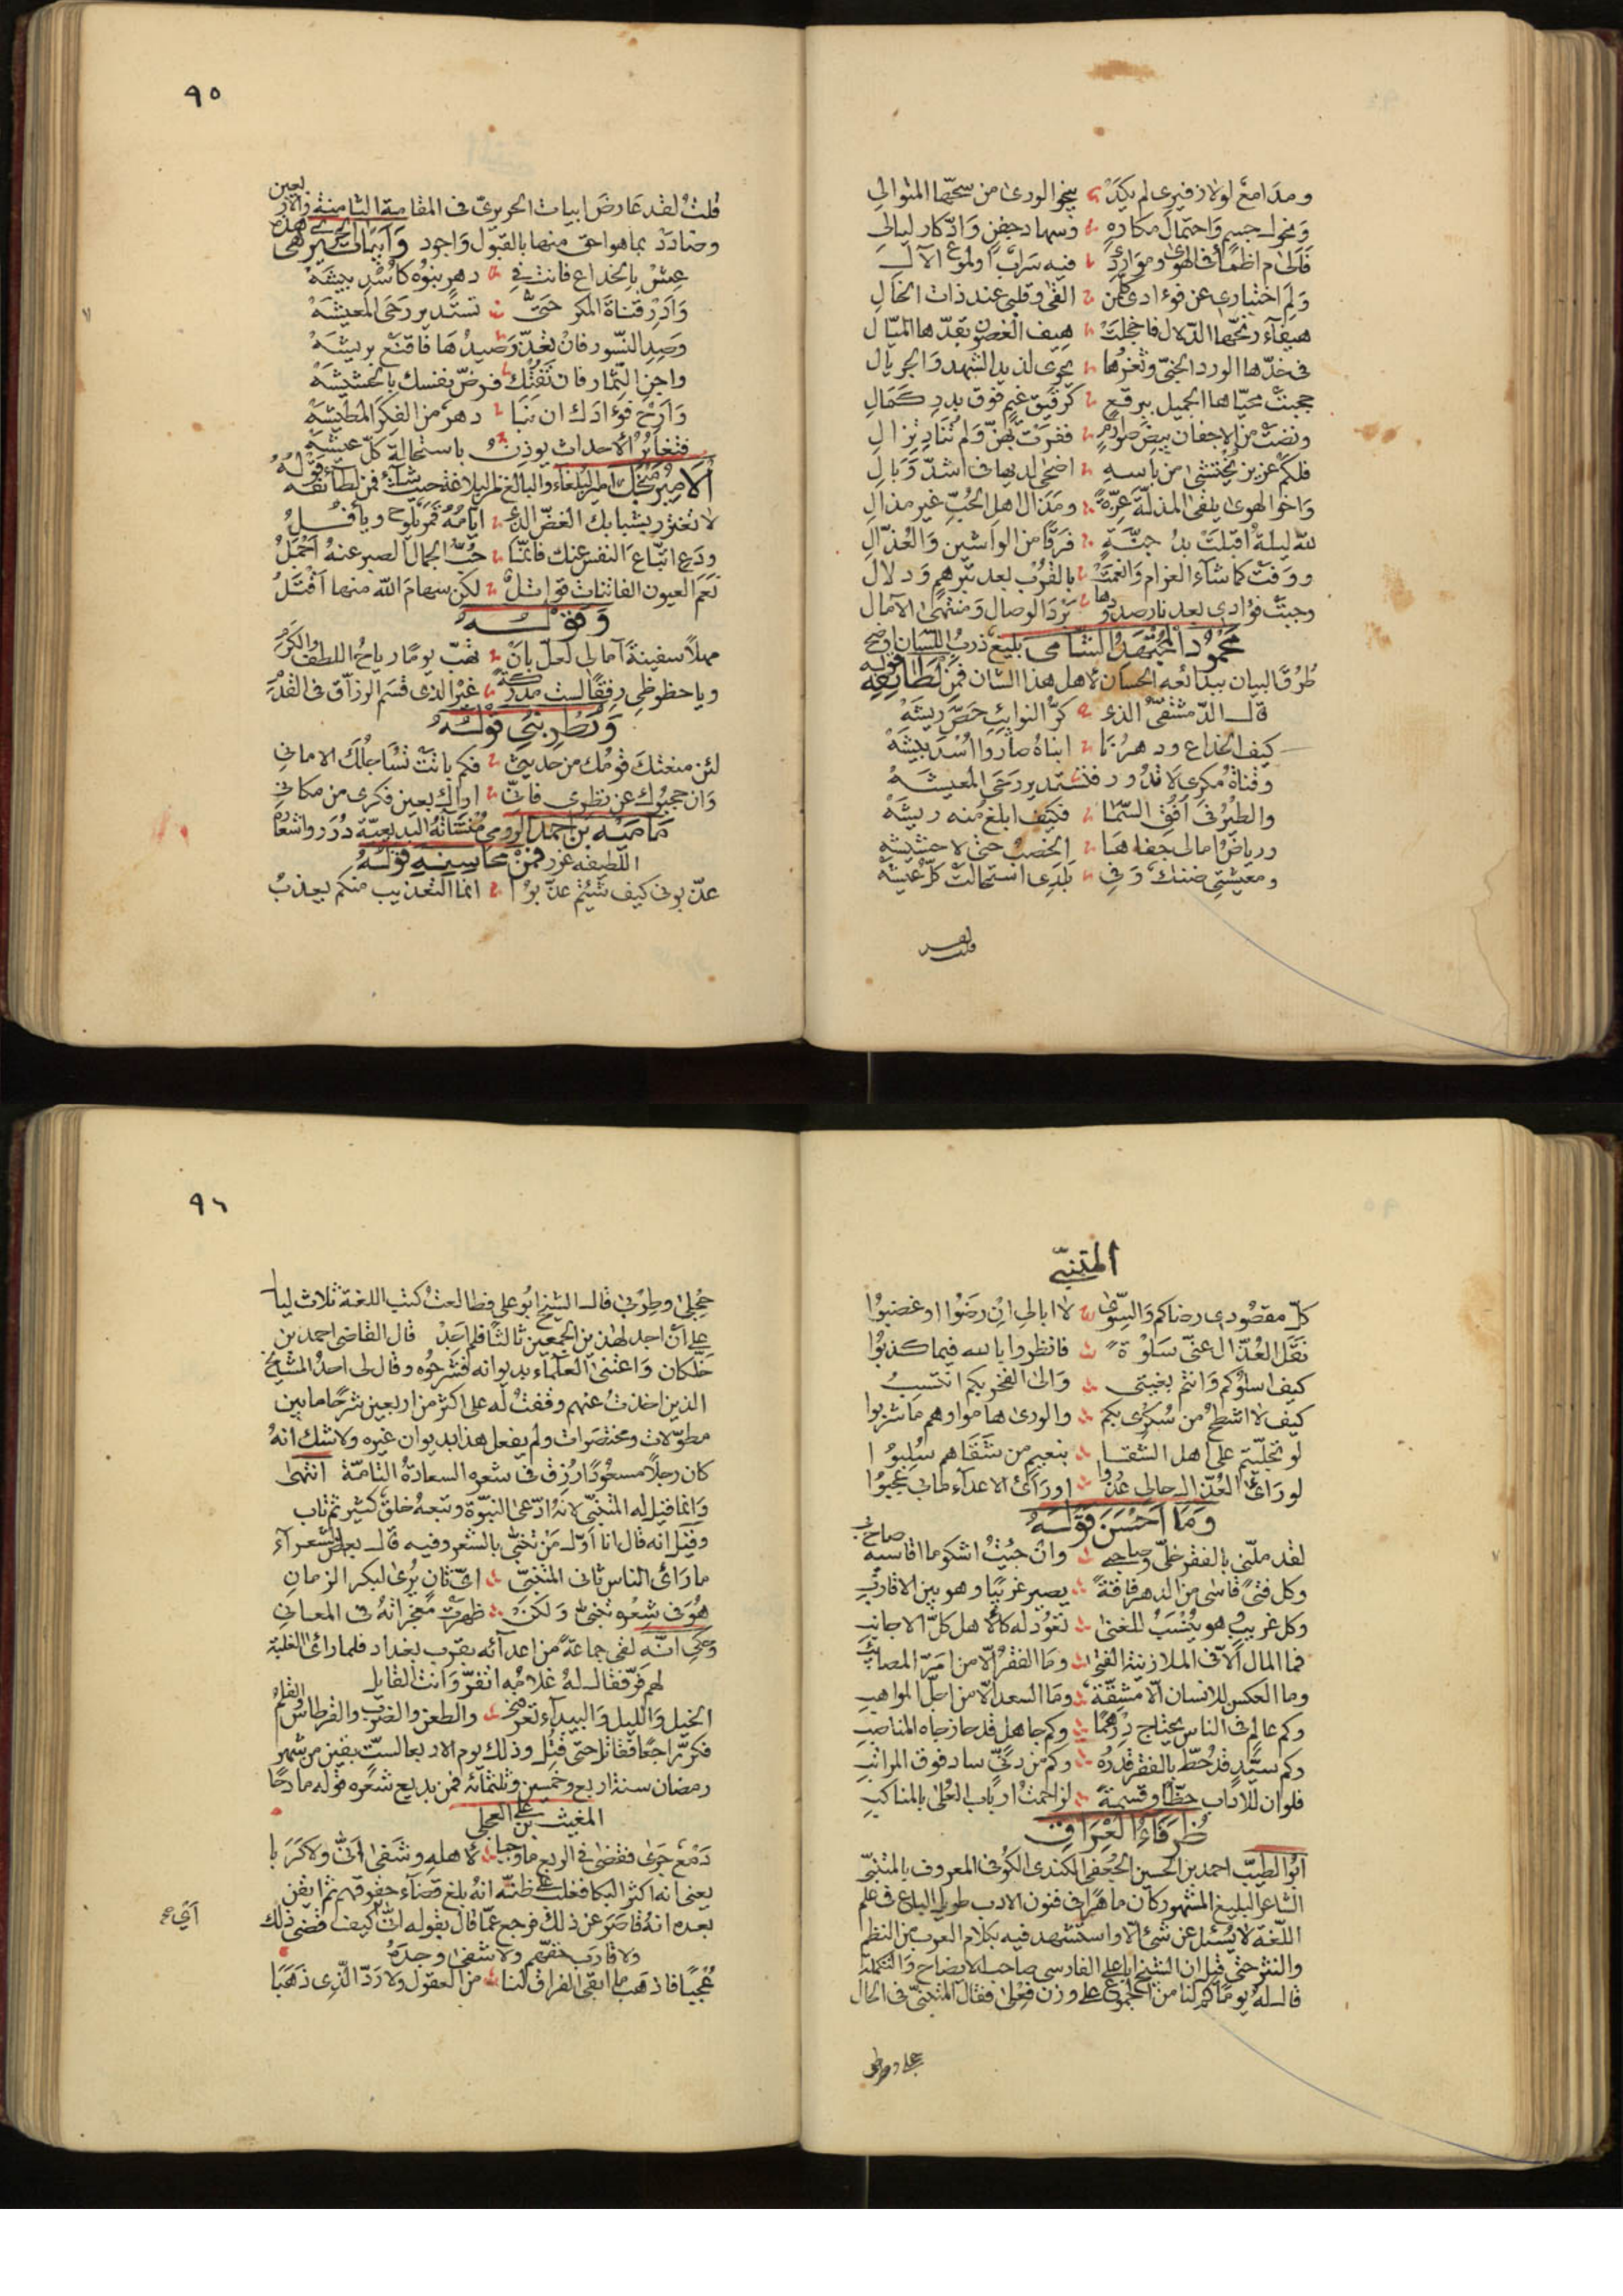 ومدامع لولا زفيرى لم يكد ينجو الورى من سحبها المتوالى
ونحول جسم واحتمال مكاره وسهاد جفن وادّكار ليالى
فالى م اظمأ فى الهوى وموارد فيه سراب اولموع الآل
ولم اختبارى عن فوءادى كلمن القى وقلبى عند ذات الخال
هيفآء رنحها الدلال فاخجلت هيف الغصون بقدّها الميّال
فى خدّها الورد الجنىّ وثغرها يحوى لذيذ الشهد والجريال
حجبت محيّاها الجميل ببرقع كرقيق غيم فوق بدر كمال
ونضت من الاجفان بيض صوارم ففرت بهنّ ولم تناد نزال
فلكم عزيز يختشى من باسه اضحى لديها فى اشدّ وبال
واخو الهوى يلقى المذلّة عزّة ومذال اهل الحبّ غير مذال
لله ليلة اقبلت بدجنّة فرقا من الواشين والعذّال
ووفت كما شآء الغرام وانعمت بالقرب بعد تبرهم ودلال
وحبت فؤادى بعد نار صدودها برد الوصال ومنتهى الآمال
محمود المجتهد الشامى بليغ ذرب اللسان اوضح
طرق البيان ببدائعه الحسان لاهل هذا الشان فمن لطائفه قوله
قال الدمشقىّ الذى كرّ النوائب حصّ ريشه
كيف الخداع ودهرنا ابناه صاروا اسد بيشه
وقناة مكرى لا تدور فتستدير رحى المعيشه
والطير فى افق السّما فكيف ابلغ منه ريشه
ورياض امالى جفاها الخصب حتى لا حشيشه
ومعيشتى ضنك وفى بلدى استحالت كلّ عيشه
قلت لقد
٩٥
قلت لقد عارض ابيات الحريرىّ فى المقامة الثامنة والاربعين
وضادد بما هو احق منها بالقبول واجود وابيات الحريرى هى هذه
عش بالخداع فانت فى دهر بنوه كاسد بيشه
وادر قناة المكر حتىّ تستدير رحى المعيشه
وصد النسور فان تعذّر صيدها فاقنع بريشه
واجن الثمار فان تفتك فرضّ نفسك بالحشيشه
وارح فوءادك ان نبا دهر من الفكر المطيشه
فتغاير الاحداث يوذن باستحالة كلّ عيشه
الامير منجك امير البلغاء والبالغ من البلاغة حيث شآء فمن لطائفه قوله
لا تغترر بشبابك الغضّ الذى ايامه قمر يلوح ويأفل
ودع اتّباع النفس عنك فانمّا حبّ الجمال الصبر عنه اجمل
نعم العيون الفاتنات قواتل لكن سهام الله منها اقتل
وقوله
مهلا سفينة آمالى لعلّ بان تهبّ يوما رياح اللطف والكرم
ويا حظوظى رفقا لست مدركة غير الذى قسم الرزّاق فى القدم
ويطربنى قوله
لئن منعتك قومك من حديثى فكم باتت تساجلك الامانى
وان حجبوك عن نظرى فانّى اراك بعين فكرى من مكانى
مامية بن احمد الرومى منشآته البديعيّة درر واشعاره
اللطيفه غرر فمن محاسنه قوله
عذّبونى كيف شئتم عذّبوا انما التعذيب منكم يعذب
المتنبّى
كلّ مقصودى رضاكم والسّوى لا ابالى ان رضوا او غضبوا
نقل العذّال عنّى سلوة فانظروا بالله فيما كذبوا
كيف اسلوكم وانتم بغيتى والى الفخر بكم انتسب
كيف لا اشطح من سكرى بكم والورى هاموا وهم ما شربوا
لو تجلّيتم على اهل الشقا بنعيم من شقاهم سلبوا
لو راى العذّال حالى عذروا او راى الاعدآء طابى عجبوا
وما احسن قوله
لقد ملّنى بالفقر خلّى وصاحبى وان جئت اشكو ما اقاسيه صاح بى
وكل فتى قاسى من الدهر فاقة يصير غريبا وهو بين الاقارب
وكل غريب هو ينسب للغنى تعود له كالاهل كلّ الاجانب
فما المال الآ فى الملا زينة الفتى وما الفقر الّا من امرّ المصائب
وما العكس للانسان الا مشقّة وما السعد الّا من اجلّ المواهب
وكم عالم فى الناس يحتاج درهما وكم جاهل قد حاز جاه المناصب
وكم سيّد قد حطّ بالفقر قدره وكم من دنىّ ساد فوق المراتب
فلو ان للآداب حظّا وقسمة لزاحمت ارباب العلى بالمناكب
ظرفاء العراق
ابو الطيّب احمد بن الحسين الجعفى الكندى الكوفى المعروف بالمتنبّى
الشاعر البليغ المشهور كان ماهرا فى فنون الادب طويل الباع فى علم
اللّغة لا يسئل عن شئ الّا واستشهد فيه بكلام العرب من النظم
والنثر حتى قيل ان الشيخ ابا على الفارسى صاحب الايضاح والتكملة
قال له يوما كم لنا من الجموع على وزن فعلى فقال المتنبىّ فى الحال
حجلى وظربى
٩٦
حجلى وظربى قال الشيخ ابو على فطالعت كتب اللغة ثلاث ليال
على ان اجد لهذين الجمعين ثالثا فلم اجد قال القاضى احمد بن
خلّكان واعتنى العلمآء بديوانه فشرحوه وقال لى احد المشايخ
الذين اخذت عنهم وقفت له على اكثر من اربعين شرحا ما بين
مطوّلات ومختصرات ولم يفعل هذا بديوان غيره ولا شك انه
كان رجلا مسعودا رزق فى شعره السعادة التامّة انتهى
وانما قيل له المتنبّى لانه ادّعى النبوّة وتبعه خلق كثير ثم تاب
وقيل انه قال انا اوّل من تنبّى بالشعر وفيه قال بعض الشعرآء
ما راى الناس ثانى المتنبىّ اىّ ثان يرى لبكر الزمان
هو فى شعره تنبىّ ولكن ظهرت معجزاته فى المعانى
وحكى انّه لقى جماعة من اعدآئه بقرب بغداد فلما راى الغلبة
لهم فرّ فقال له غلامه اتفرّ وانت القايل
الخيل والليل والبيدآء تعرفنى والطعن والضرب والقرطاس والقلم
فكرّ راجعا فقاتل حتى قتل وذلك يوم الاربعا لستّ بقين من شهر
رمضان سنة اربع وخمسين وثلثمائه فمن بديع شعره قوله مادحا
المغيث بن على العجلى
دمع جرى فقضى فى الربع ما وجبا لاهله وشفى انّى ولا كربا
يعنى انه اكثر البكا فغلب على ظنّه انه بلغ قضآء حقوقهم ثم ايقن
بعده انه قاصر عن ذلك فرجع عمّا قال بقوله انّى اى كيف قضى ذلك
ولا قارب حقّهم ولا شفى وجده
عجبا فاذهب ما ابقى الفراق لنا من العقول ولا ردّ الّذى ذهبا